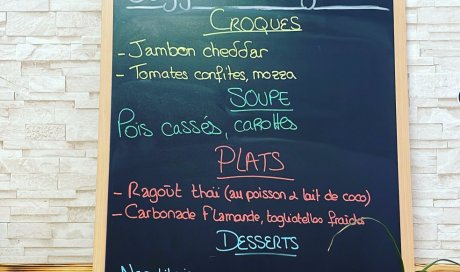 CROQUES
- Jambon cheddar
- Tomates confites, mozza
SOUPE
Pois cassés, carottes
PLATS
- Ragoût thaï (au poisson & lait de coco)
- Carbonade flamande, tagliatelles fraîches
DESSERTS